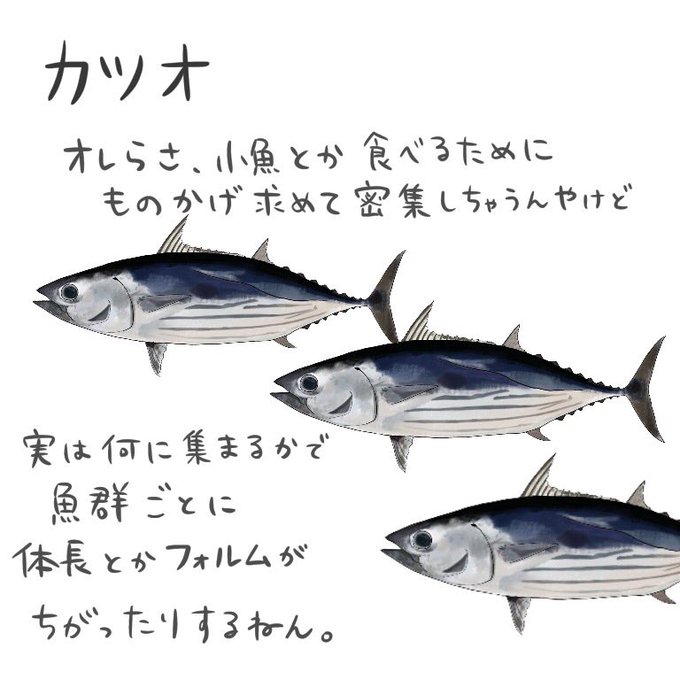 カツオ
オレらさ、小魚とか食べるために
ものかげ求めて密集しちゃうんやけど
実は何に集まるかで
魚群ごとに
体長とかフォルムが
ちがったりするねん。